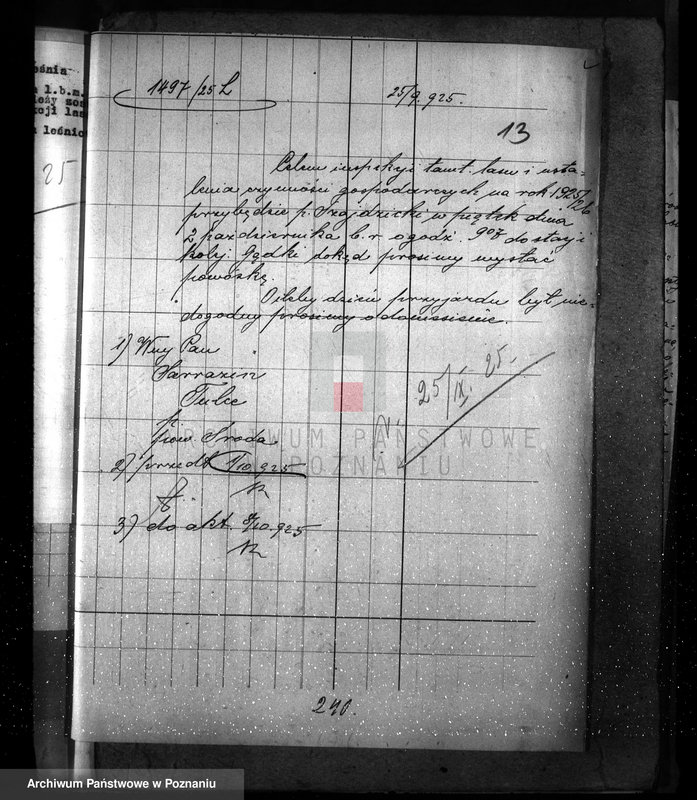 eśnia
l.b.m.
eży zos
kcji las
leśnic
25
1497/25 L
25/9. 925.
13
Celem inspekcji tamt. lasu i usta-
lenia czynności gospodarczych na rok 1925/26
przybędzie p. Szajdzicki w piątek dnia
2 października b. r. o godź. 907 do stacji
kolej. Gądki dokąd prosimy wysłać
powózkę.
Oileby dzień przyjazdu był nie-
dogodny prosimy o doniesienie.
1) Wny Pan
Sarrazin
Tulce
p.
pow. Środa
25/IX. 25.
2) przedł. 1/10. 925
3) do akt. 8/10. 925
ARCHIWUM PAŃSTWOWE
W POZNANIU
240.
Archiwum Państwowe w Poznaniu